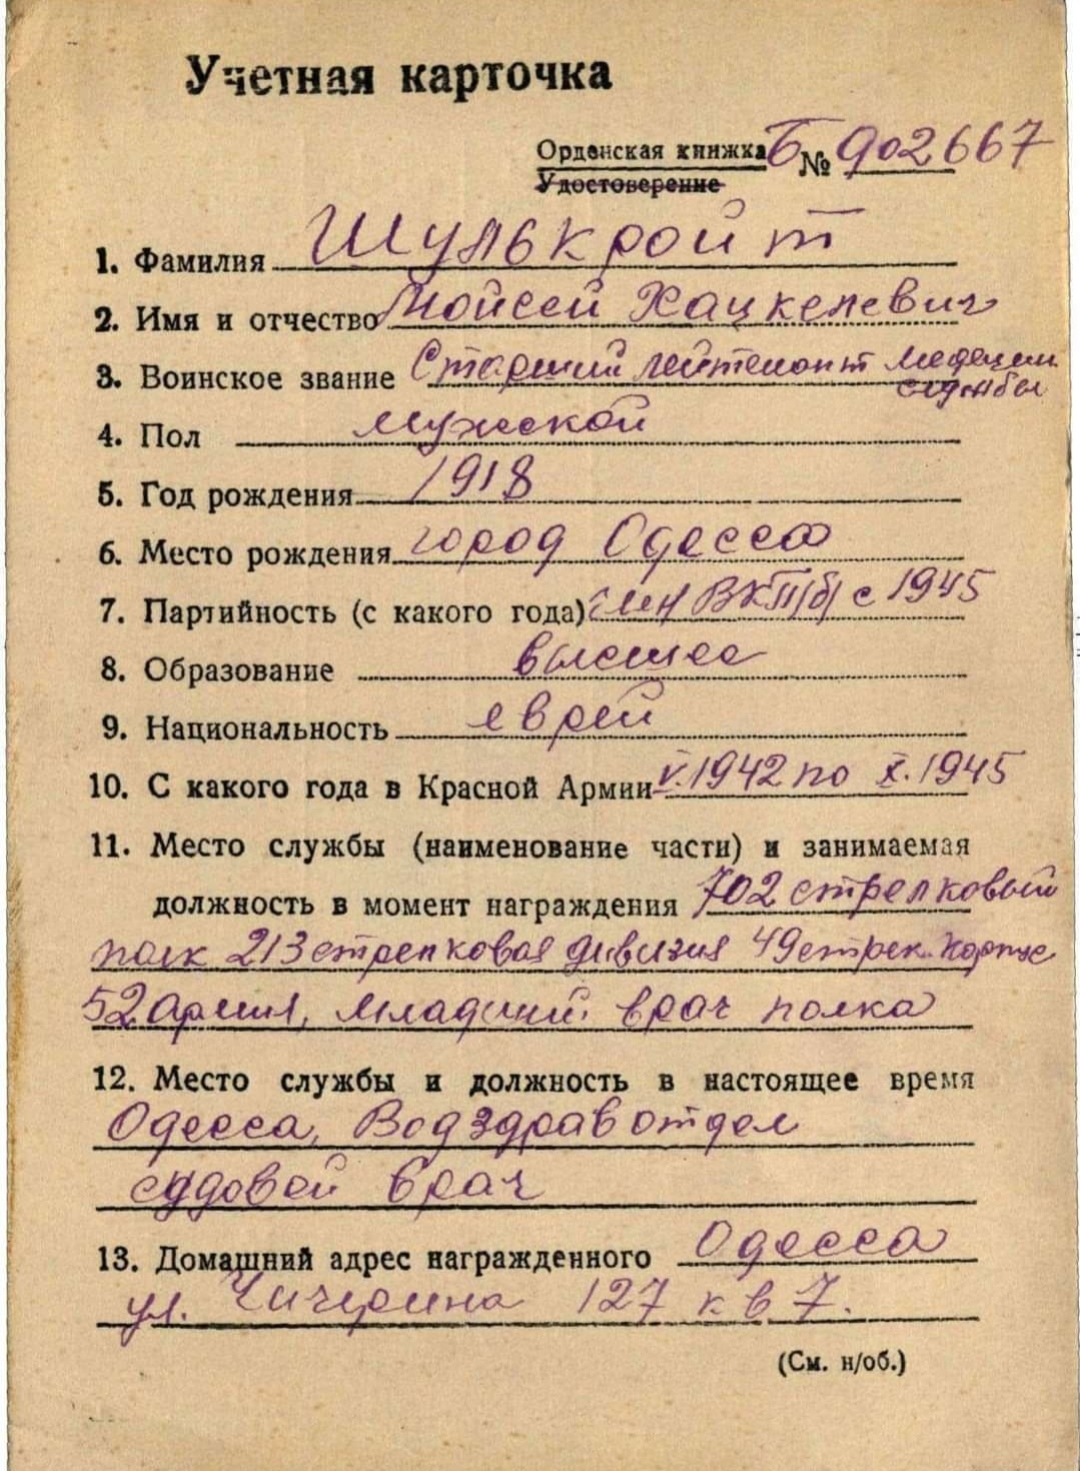 Учетная карточка
Орденская книжка Б № 902667
Удостоверение
1. Фамилия Шулькройт
2. Имя и отчество Мойсей Хацкелевич
3. Воинское звание Старший лейтенант медецин.
службы
4. Пол мужской
5. Год рождения 1918
6. Место рождения город Одесса
7. Партийность (с какого года) член ВКП/б/ с 1945
8. Образование высшее
9. Национальность еврей
10. С какого года в Красной Армии V.1942 по X.1945
11. Место службы (наименование части) и занимаемая
должность в момент награждения 702 стрелковый
полк 213 стрелковая дивизия 49 стрек. корпус
52 Армия, младший врач полка
12. Место службы и должность в настоящее время
Одесса, Водздравотдел
судовой врач
13. Домашний адрес награжденного Одесса
ул. Чичерина 127 кв 7.
(См. н/об.)